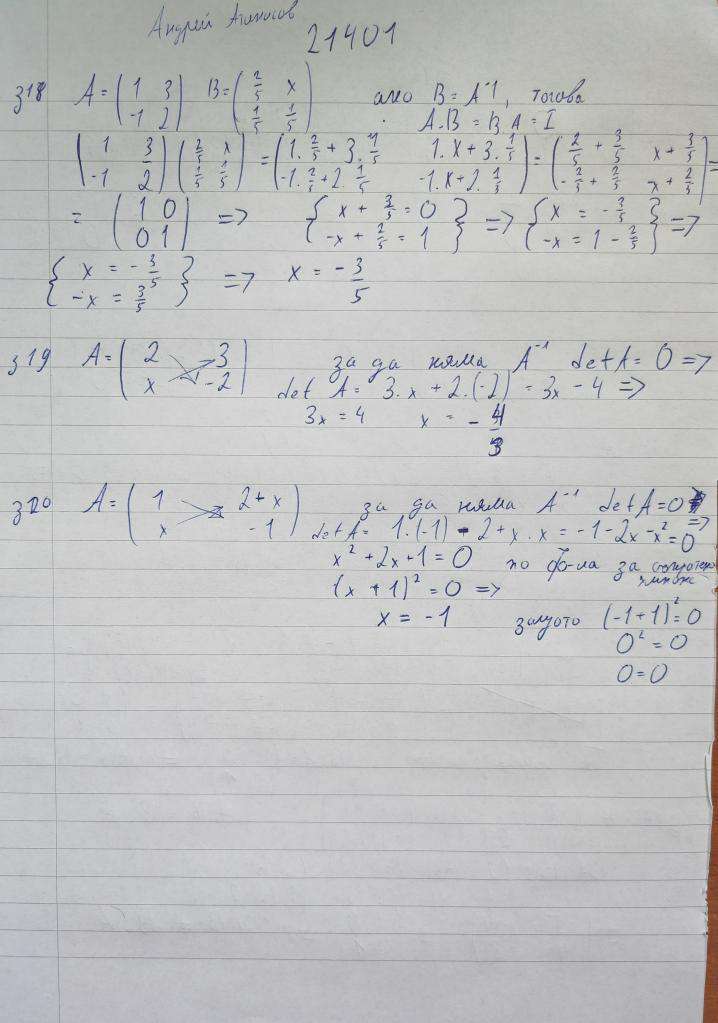 Андрей Атанасов
21401
з18 A = (1 3 -1 2) B = (2/5 x 1/5 1/5) ако B = A⁻¹, тогава
A.B = B.A = I
(1 3 -1 2) (2/5 x 1/5 1/5) = (1.2/5 + 3.1/5 1.x + 3.1/5 -1.2/5 + 2.1/5 -1.x + 2.1/5) = (2/5 + 3/5 x + 3/5 -2/5 + 2/5 -x + 2/5) =
= (1 0 0 1) => { x + 3/5 = 0 -x + 2/5 = 1 } => { x = -3/5 -x = 1 - 2/5 } =>
{ x = -3/5 -x = 3/5 } => x = -3/5
з19 A = (2 3 x -2) за да няма A⁻¹ det A = 0 =>
det A = 3.x + 2.(-2) = 3x - 4 =>
3x = 4 x = -4/3
з20 A = (1 2+x x -1) за да няма A⁻¹ det A = 0 =>
det A = 1.(-1) - 2+x.x = -1-2x-x² = 0
x² + 2x + 1 = 0 по ф-ла за
(x + 1)² = 0 =>
x = -1 защото (-1+1)² = 0
0² = 0
0 = 0